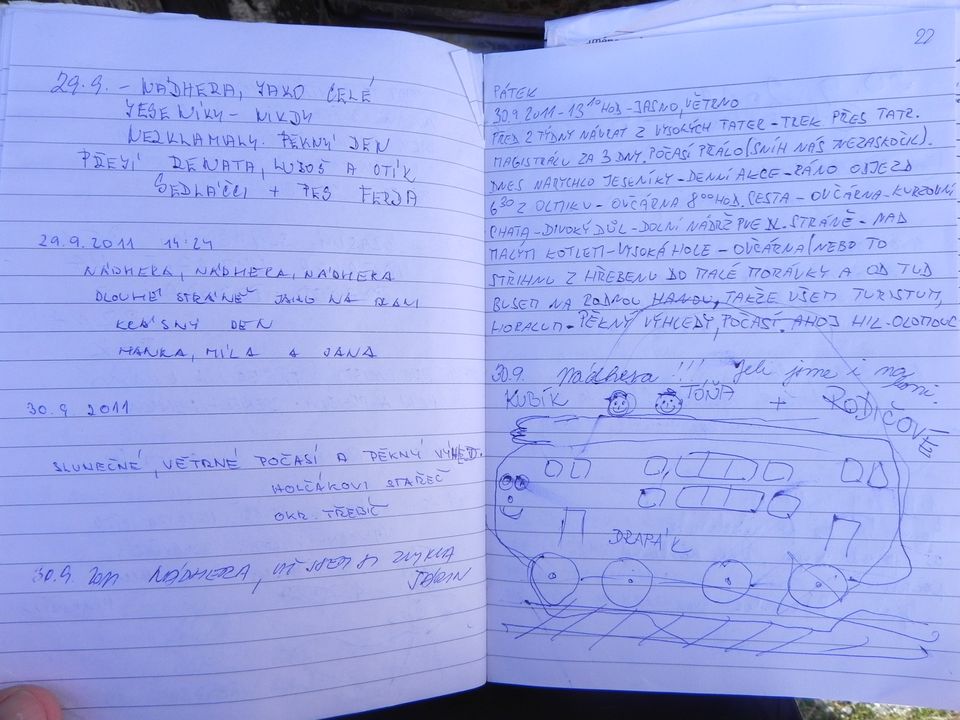 29.9. - NÁDHERA, JAKO CELÉ
JESENÍKY - NIKDY
NEZKLAMALY. PĚKNÝ DEN
PŘEJÍ RENATA, LUBOŠ A OTÍK
SEDLÁČCI + PES FERDA
29.9.2011 14:24
NÁDHERA, NÁDHERA, NÁDHERA
DLOUHÉ STRÁNĚ JAKO NA DLANI
KRÁSNÝ DEN
HANKA, MÍLA A JANA
30.9 2011
SLUNEČNÉ, VĚTRNÉ POČASÍ A PĚKNÝ VÝHLED.
HOLČÁKOVI STAŘEČ
OKR. TŘEBÍČ
30.9. 2011 NÁDHERA, UŽ JSEM SI ZVYKLA
22
PÁTEK
30.9 2011 - 13 10 HOD - JASNO, VĚTRNO
PŘED 2 TÝDNY NÁVRAT Z VYSOKÝCH TATER - TREK PŘES TATR.
MAGISTRÁLU ZA 3 DNY. POČASÍ PŘÁLO (SNÍH NÁS NEZASKOČIL).
DNES NARYCHLO JESENÍKY - DENNÍ AKCE - RÁNO ODJEZD
6 30 Z OLMIKU - OVČÁRNA 8 00 HOD. CESTA - OVČÁRNA - KURZOVNÍ
CHATA - DIVOKÝ DŮL - DOLNÍ NÁDRŽ PVE DL. STRÁNĚ - NAD
MALÝM KOTLEM - VYSOKÁ HOLE - OVČÁRNA (NEBO TO
STŘIHNU Z HŘEBENU DO MALÉ MORÁVKY A OD TUD
BUSEM NA RODNOU HANOU, TAKŽE VŠEM TURISTUM,
HORALUM - PĚKNÝ VÝHLEDY, POČASÍ. AHOJ MIL - OLOMOUC
30.9. Nádhera!!! Jeli jsme i na
KUBÍK TÓŇA + RODIČOVÉ
DRAPÁK